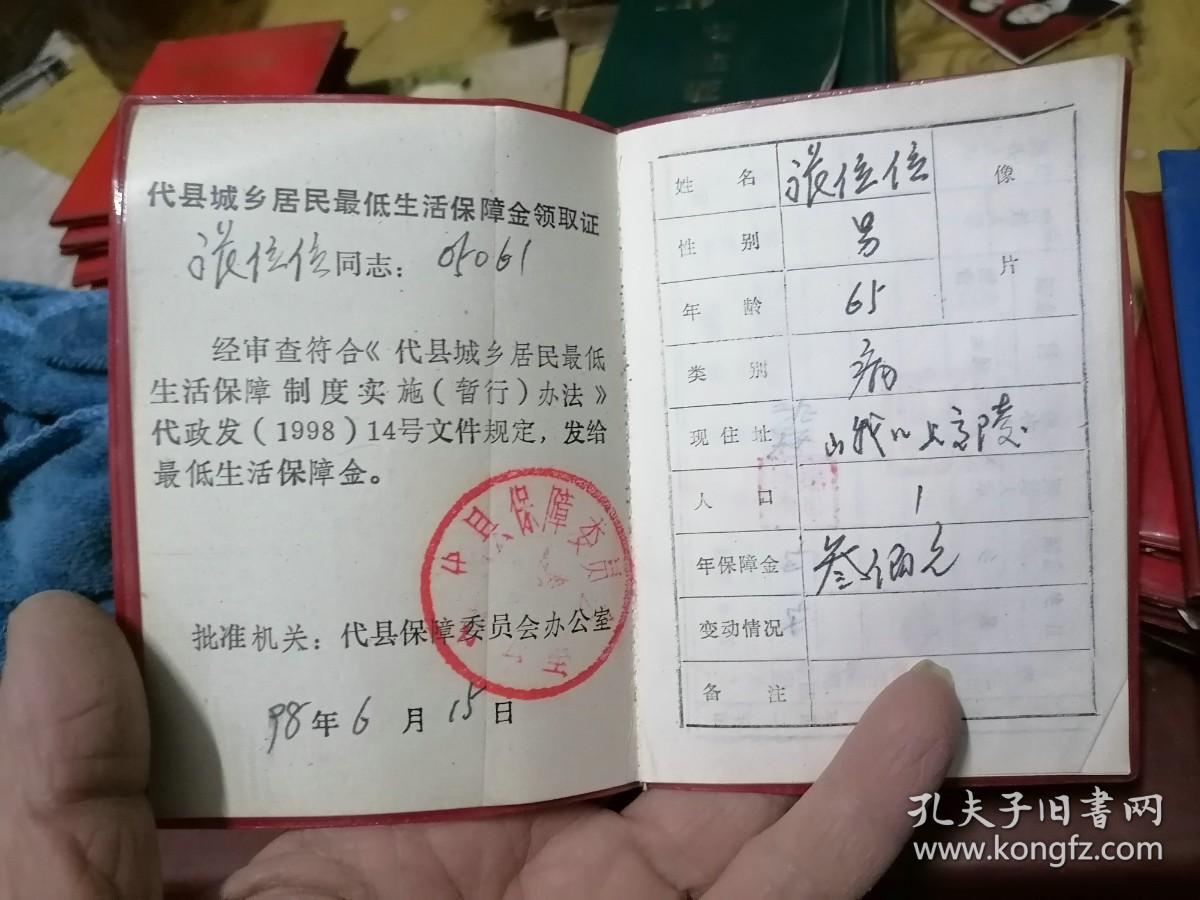 代县城乡居民最低生活保障金领取证
张位位同志: 05061
经审查符合《代县城乡居民最低
生活保障制度实施(暂行)办法》
代政发(1998)14号文件规定,发给
最低生活保障金。
代县保障委员会
批准机关:代县保障委员会办公室
98年6月15日
姓名 张位位 像片
性别 男
年龄 65
类别 病
现住址 上高陵
人口 1
年保障金 叁佰元
变动情况
备注
孔夫子旧書网
www.kongfz.com